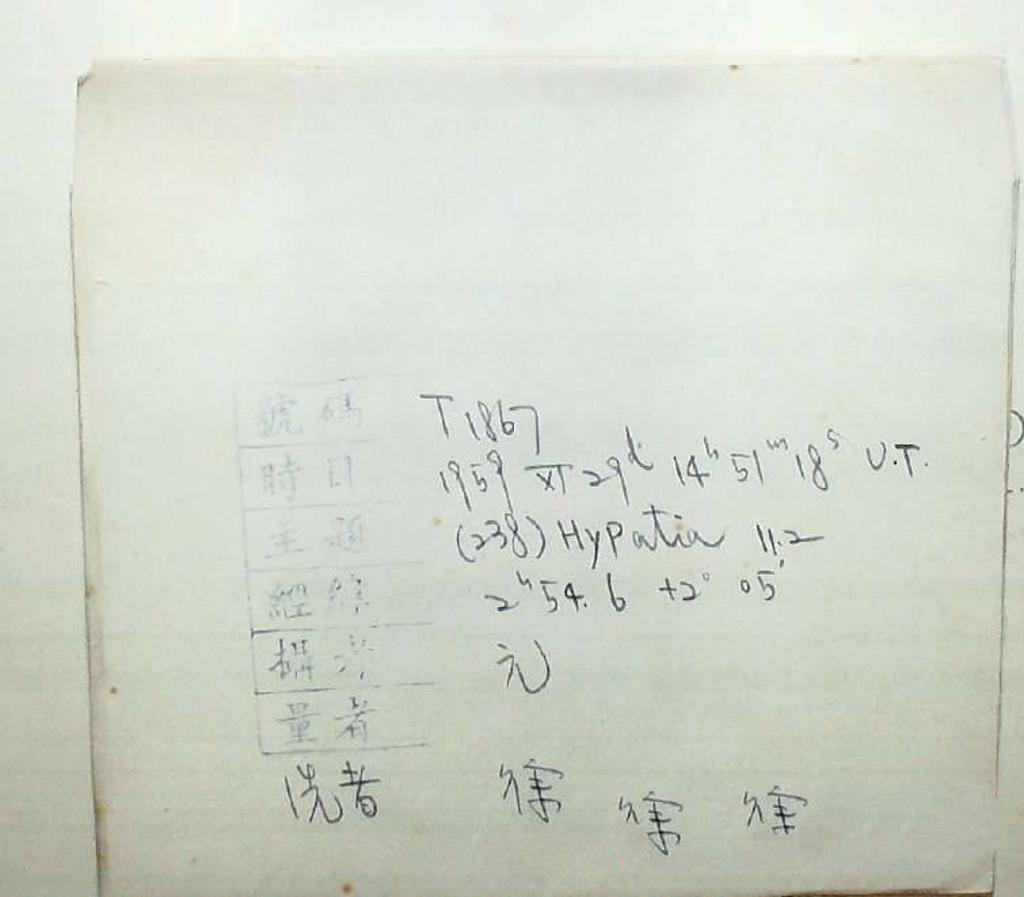 號碼 T 1867
時日 1959 XI 29d 14h 51m 18s U.T.
主題 (238) Hypatia 11.2
經緯 2h 54.6 +2° 05'
攝者 元
量者
洗者 徐 徐 徐